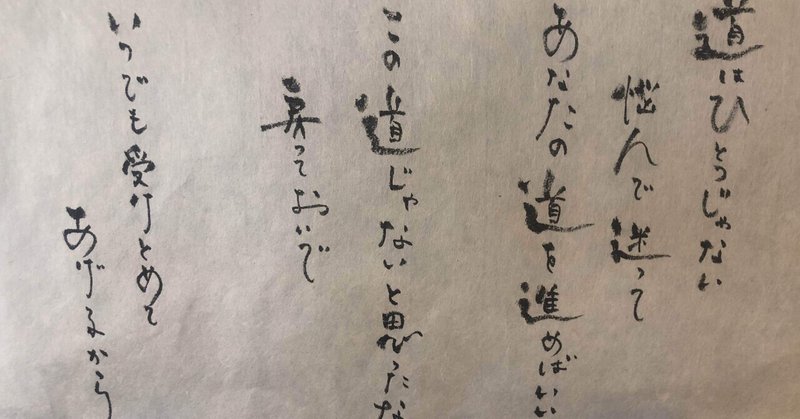 道はひとつじゃない
悩んで迷って
あなたの道を進めばいい
この道じゃないと思ったな
戻っておいで
いつでも受けとめて
あげるから